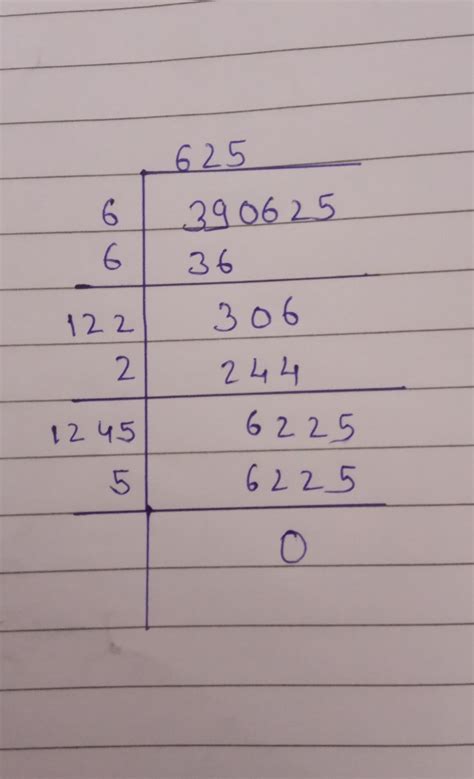 625
6 390625
6 36
122 306
2 244
1245 6225
5 6225
0